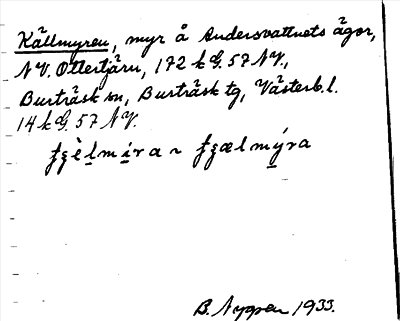 Källmyren, myr å Andersvattnets ägor,
NV. Ottertjärn, 172 k G. 57 NV.,
Burträsk sn, Burträsk tg, Västerb. l.
14 k G. 57 NV.
B. Nygren 1933.